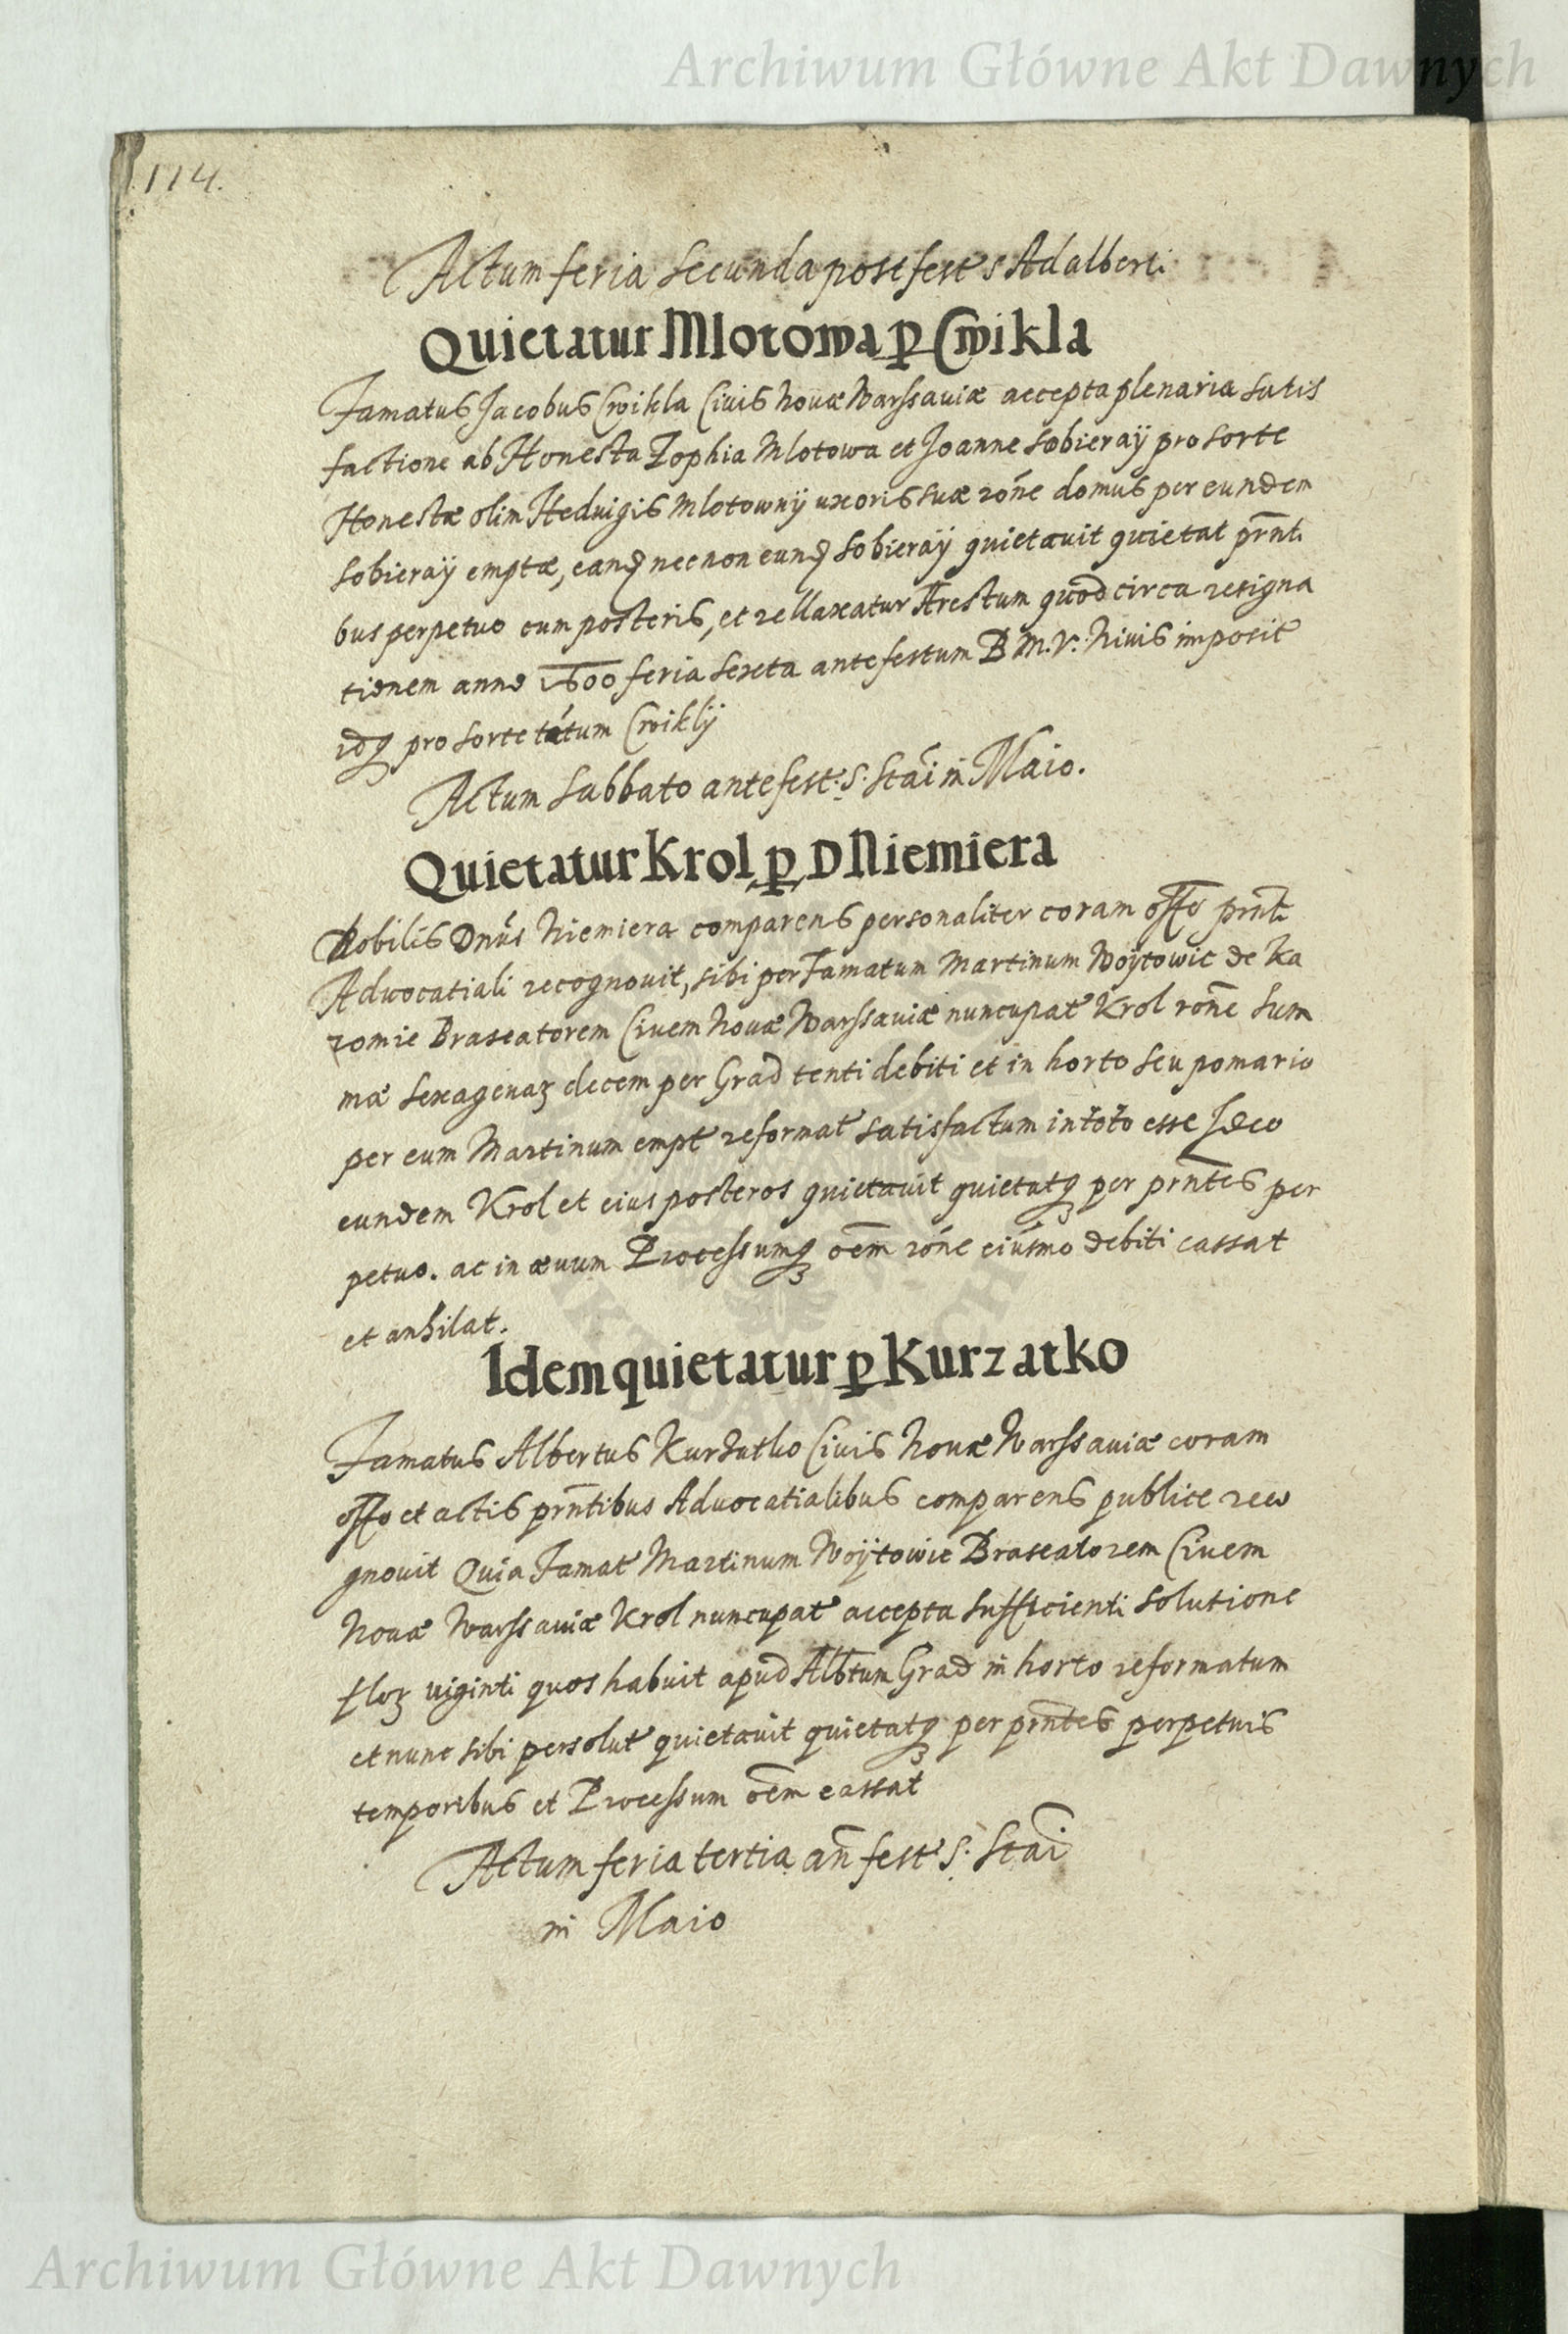 Archiwum Główne Akt Dawnych
114.
Actum feria Secunda post fest' S Adalberti
Quietatur Mlotowa p Cwikla
Famatus Jacobus Cwikla Civis Novæ Warssauiæ accepta plenaria satis
factione ab Honesta Zophia Mlotowa et Joanne Sobieraÿ pro sorte
Honestæ olim Heduigis Mlotownÿ uxoris suæ rőne domus per eundem
Sobieraÿ emptæ, eanɖ necnon eunɖ Sobieraÿ quietauit quietat prñt.
bus perpetuo cum posteris, et rellaxatur Arestum quod circa resigna
tionem anno 1600 feria sexta ante festum B M. V. Niuis imposit'
idq pro sorte tátum Cwiklÿ
Actum Sabbato ante fest: S. Stai in Maio.
Quietatur Krol p D Niemiera
Nobilis Dnűs Niemiera comparens personaliter coram offo prñti
Aduocatiali recognouit, sibi per Famatum Martinum Woÿtowic de Ka
zomie Braseatorem Ciuem Nouæ Warssauiæ nuncupat' Krol rőne Sum
mæ Sexagenaꝝ decem per Grad tenti debiti et in horto seu pomario
per eum Martinum empt' reformat' satisfactum in toto esse Ideo
eundem Krol et eius posteros quietauit quietatq per prñtes per
petuo. ac in æuum Processumq oem rőne eiusmo debiti cassat
et anhilat.
Idem quietatur p Kurzatko
Famatus Albertus Kurzatko Ciuis Nouæ Warssauiæ coram
offo et actis prñtibus Aduocatialibus comparens publice reco
gnouit Quia Famat' Martinum Woÿtowic Braseatorem Ciuem
Nouæ Warssauiæ Krol nuncupat' accepta sufficienti solutione
floꝝ uiginti quos habuit apud Albtum Grad in horto reformatum
et nunc sibi persolut' quietauit quietatq per prñtes perpetuis
temporibus et Processum oem cassat
Actum feria tertia an fest' S. Stai
in Maio
Archiwum Główne Akt Dawnych